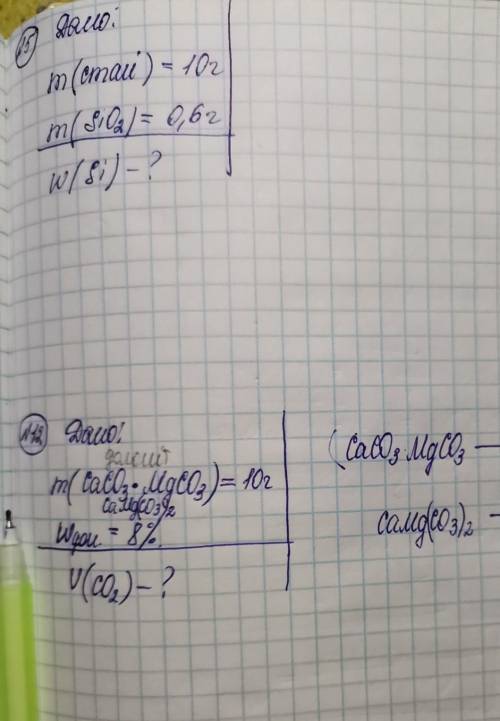 15 Дано:
m(стали) = 10г
m(SiO₂) = 0,6г
W(Si) - ?
Дано:
доломит
m(CaCO₃·MgCO₃) = 10г
CaMg(CO₃)₂
= 8%
V(CO₂) - ?
(CaCO₃·MgCO₃ —
CaMg(CO₃)₂ —